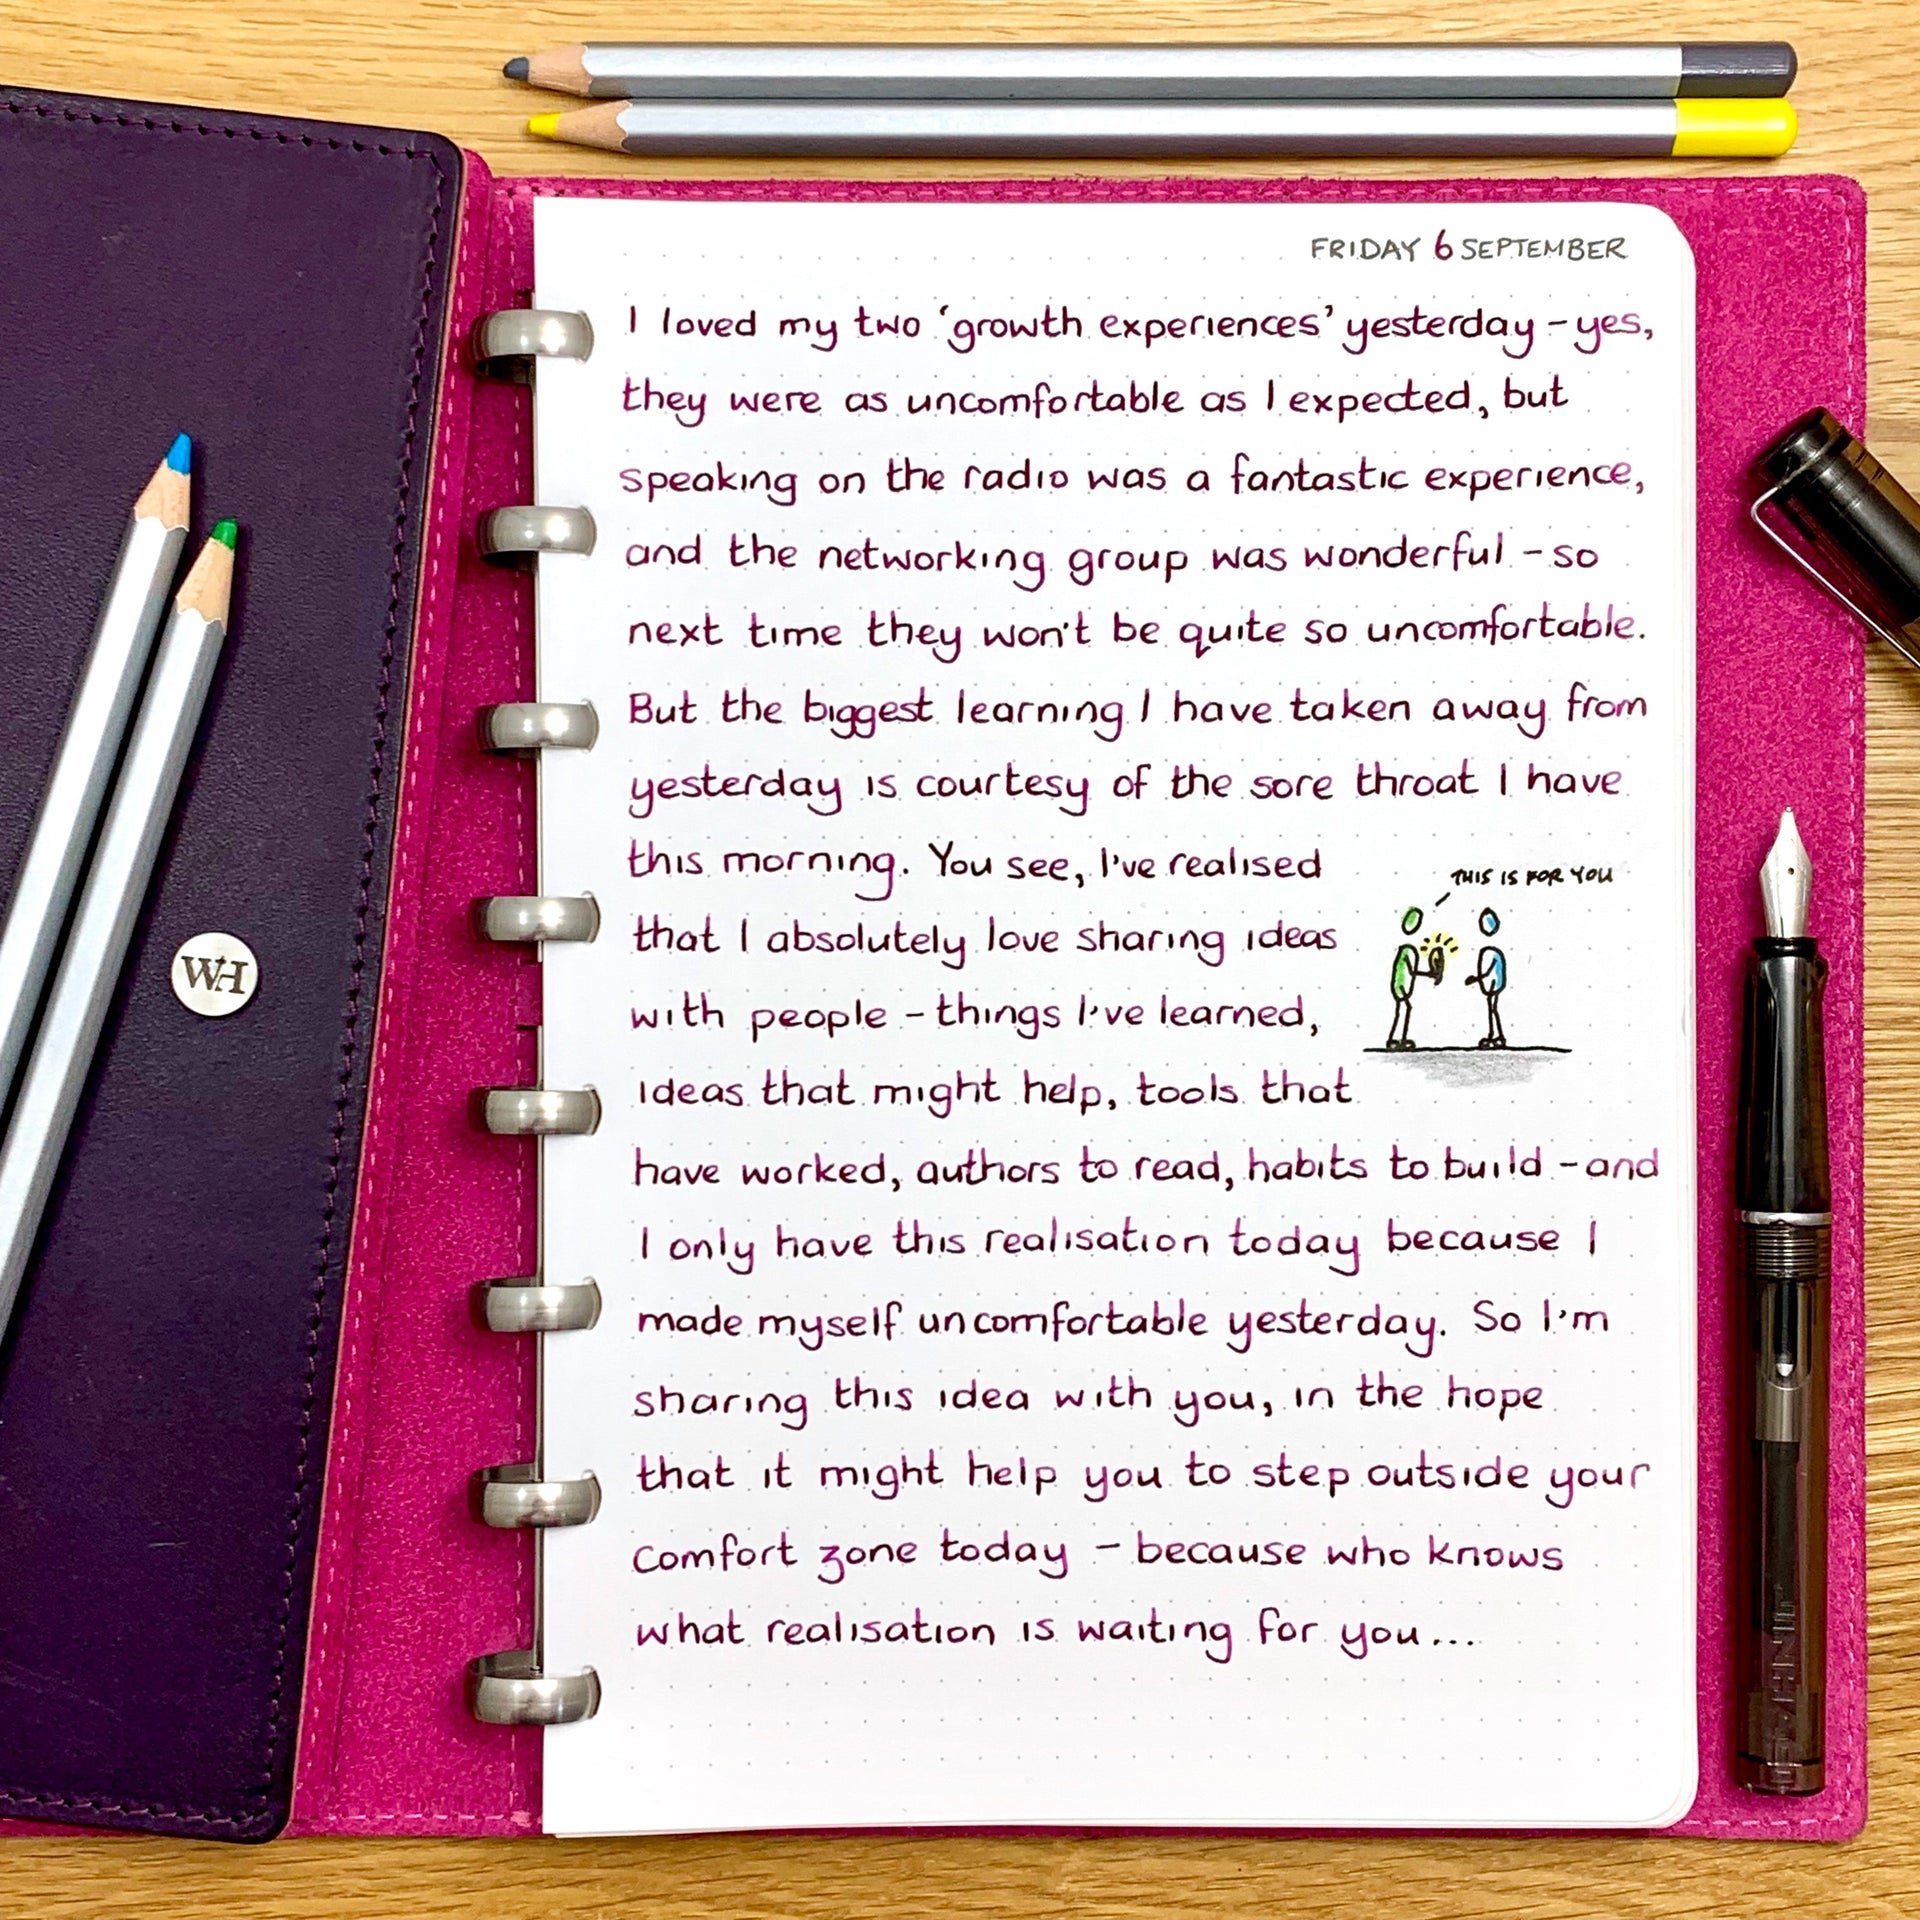 FRIDAY 6 SEPTEMBER
I loved my two 'growth experiences' yesterday – yes,
they were as uncomfortable as I expected, but
speaking on the radio was a fantastic experience,
and the networking group was wonderful – so
next time they won't be quite so uncomfortable.
But the biggest learning I have taken away from
yesterday is courtesy of the sore throat I have
this morning. You see, I've realised
THIS IS FOR YOU
that I absolutely love sharing ideas
with people – things I've learned,
ideas that might help, tools that
have worked, authors to read, habits to build – and
I only have this realisation today because I
made myself uncomfortable yesterday. So I'm
sharing this idea with you, in the hope
that it might help you to step outside your
comfort zone today – because who knows
what realisation is waiting for you...
WH